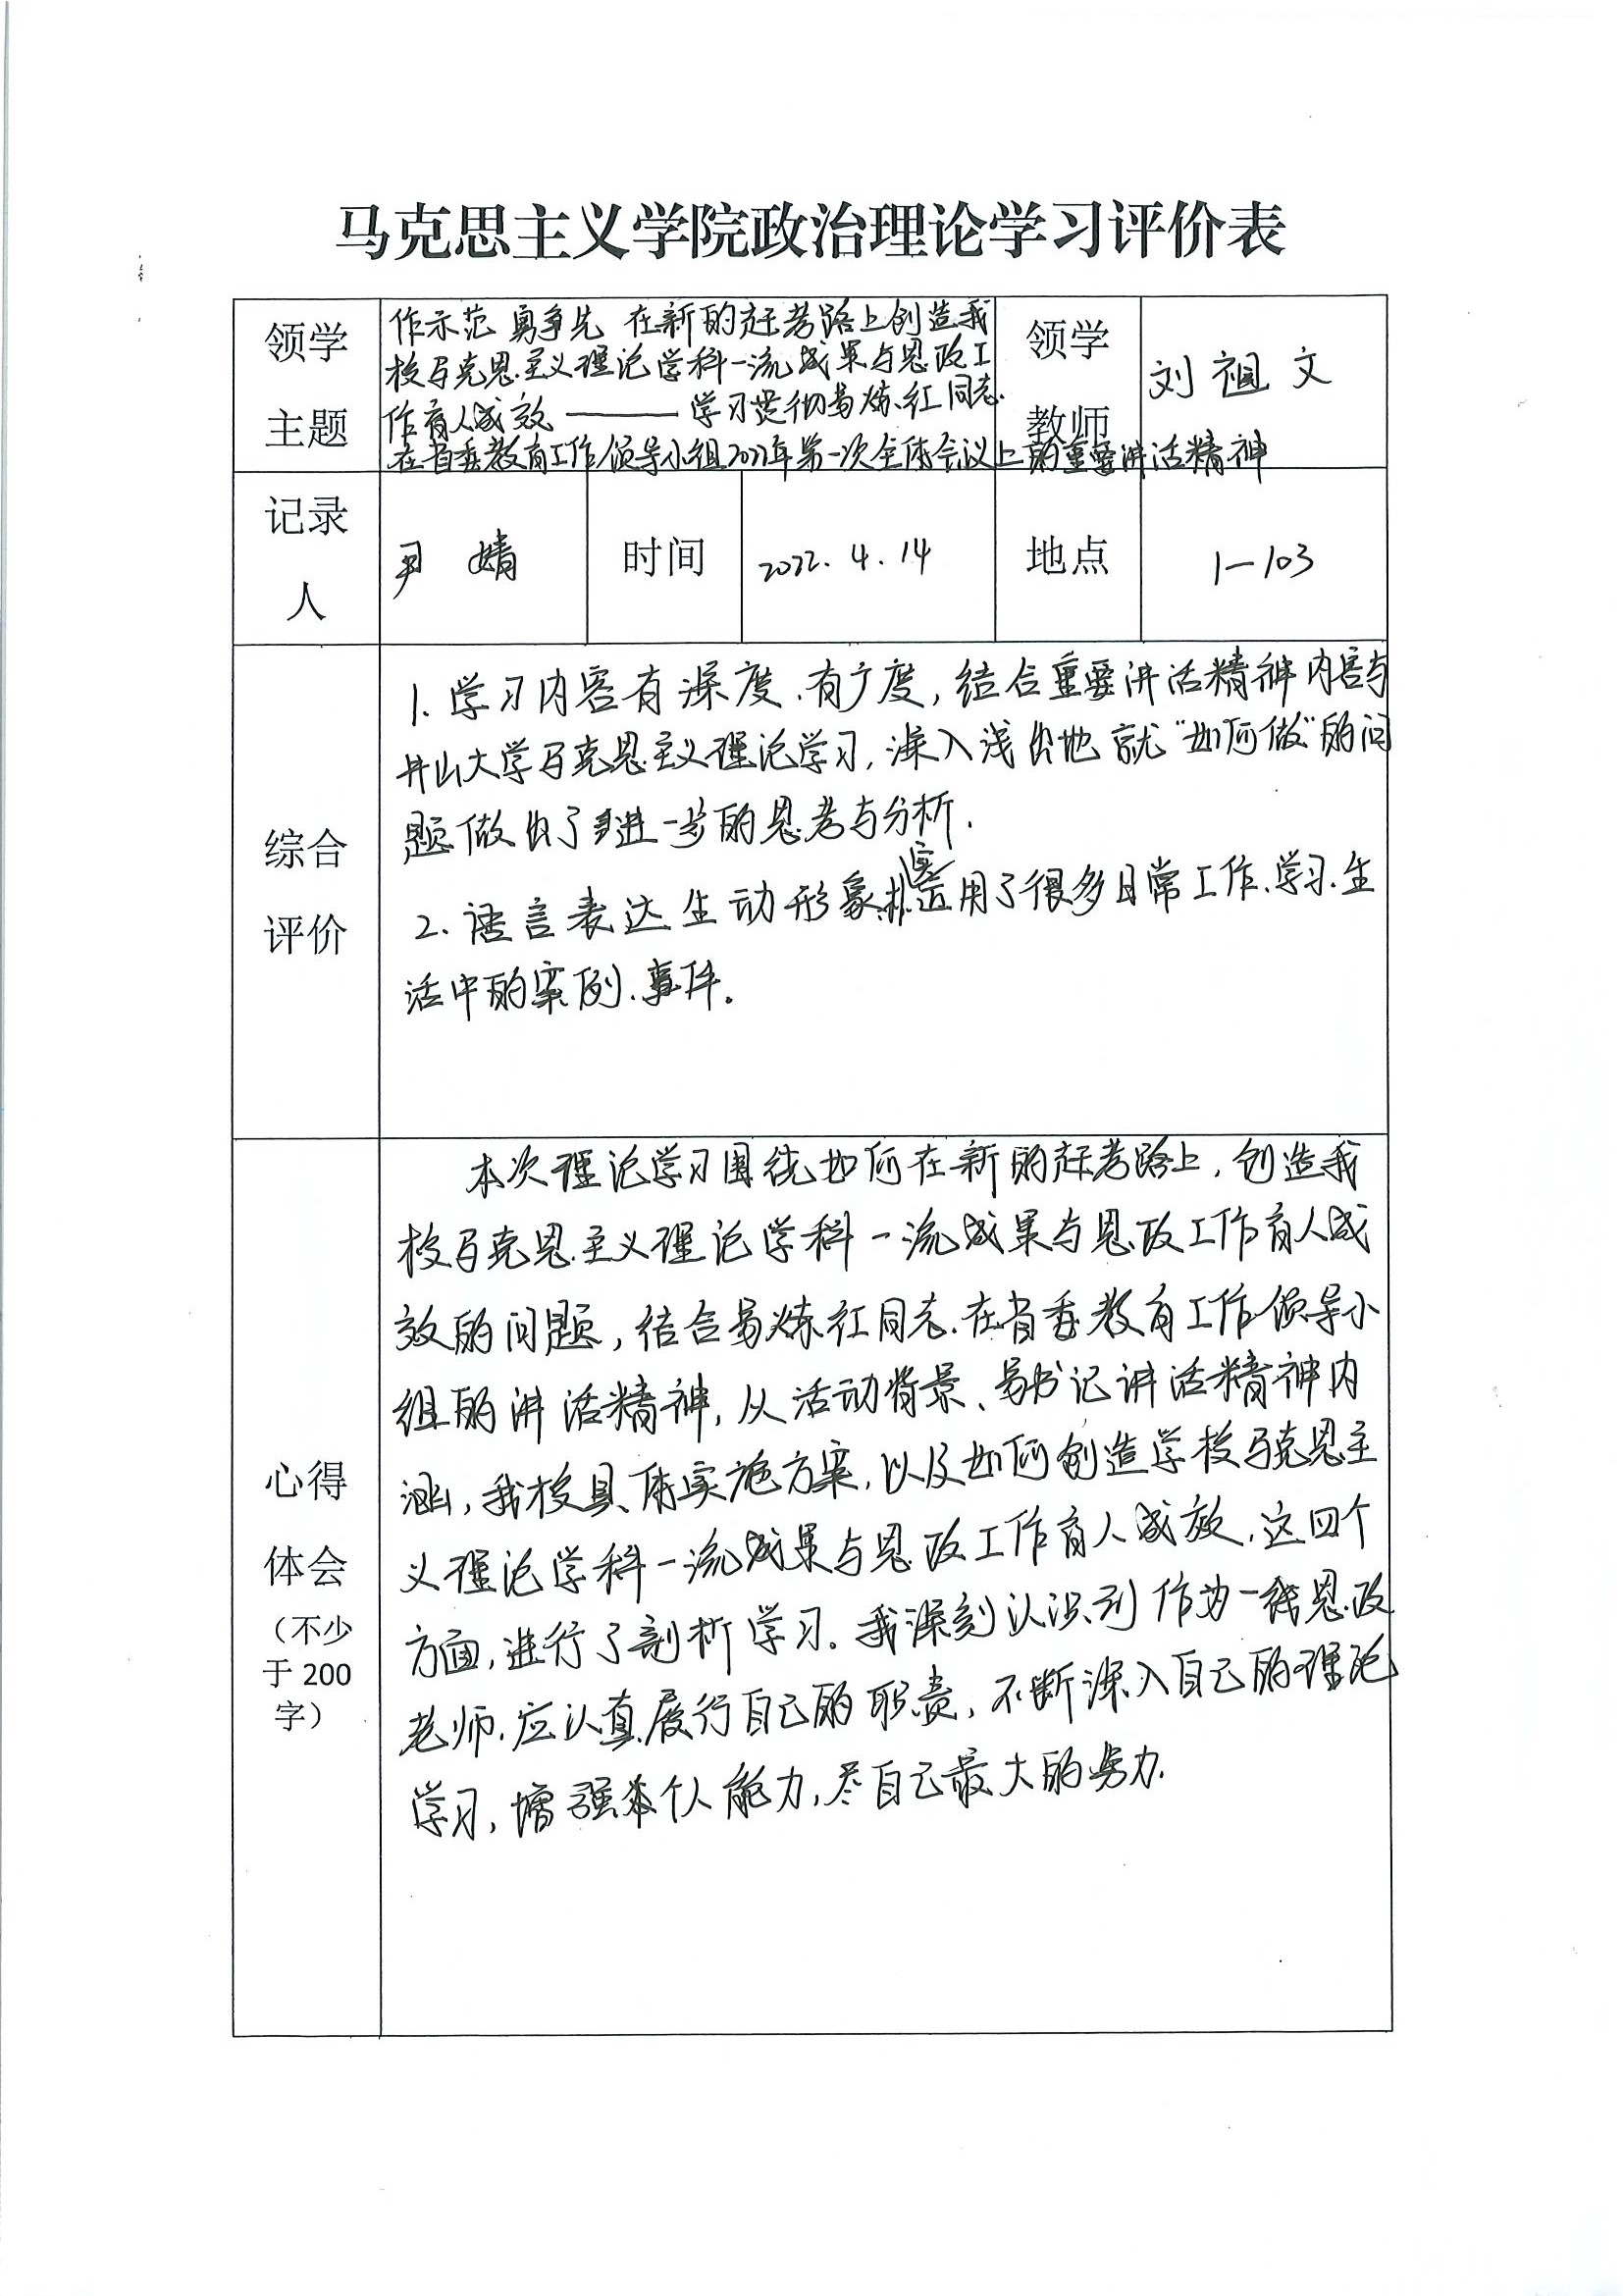 马克思主义学院政治理论学习评价表
领学
主题
作示范 勇争先 在新的赶考路上创造我
校马克思主义理论学科一流成果与思政工
作育人成效——学习贯彻易炼红同志
在省委教育工作领导小组2022年第一次全体会议上的重要讲话精神
领学
教师
刘祖文
记录
人
尹 婧
时间
2022.4.14
地点
1-103
综合
评价
1.学习内容有深度、有广度,结合重要讲话精神内容与
井山大学马克思主义理论学习,深入浅出地就“如何做”的问
题做出了进一步的思考与分析.
2.语言表达生动形象朴实,运用了很多日常工作、学习、生
活中的案例、事件。
心得
体会
(不少
于200
字)
本次理论学习围绕如何在新的赶考路上,创造我
校马克思主义理论学科一流成果与思政工作育人成
效的问题,结合易炼红同志在省委教育工作领导小
组的讲话精神,从活动背景、易书记讲话精神内
涵,我校具体实施方案,以及如何创造学校马克思主
义理论学科一流成果与思政工作育人成效,这四个
方面,进行了剖析学习。我深刻认识到作为一线思政
老师,应认真履行自己的职责,不断深入自己的理论
学习,增强个人能力,尽自己最大的努力.